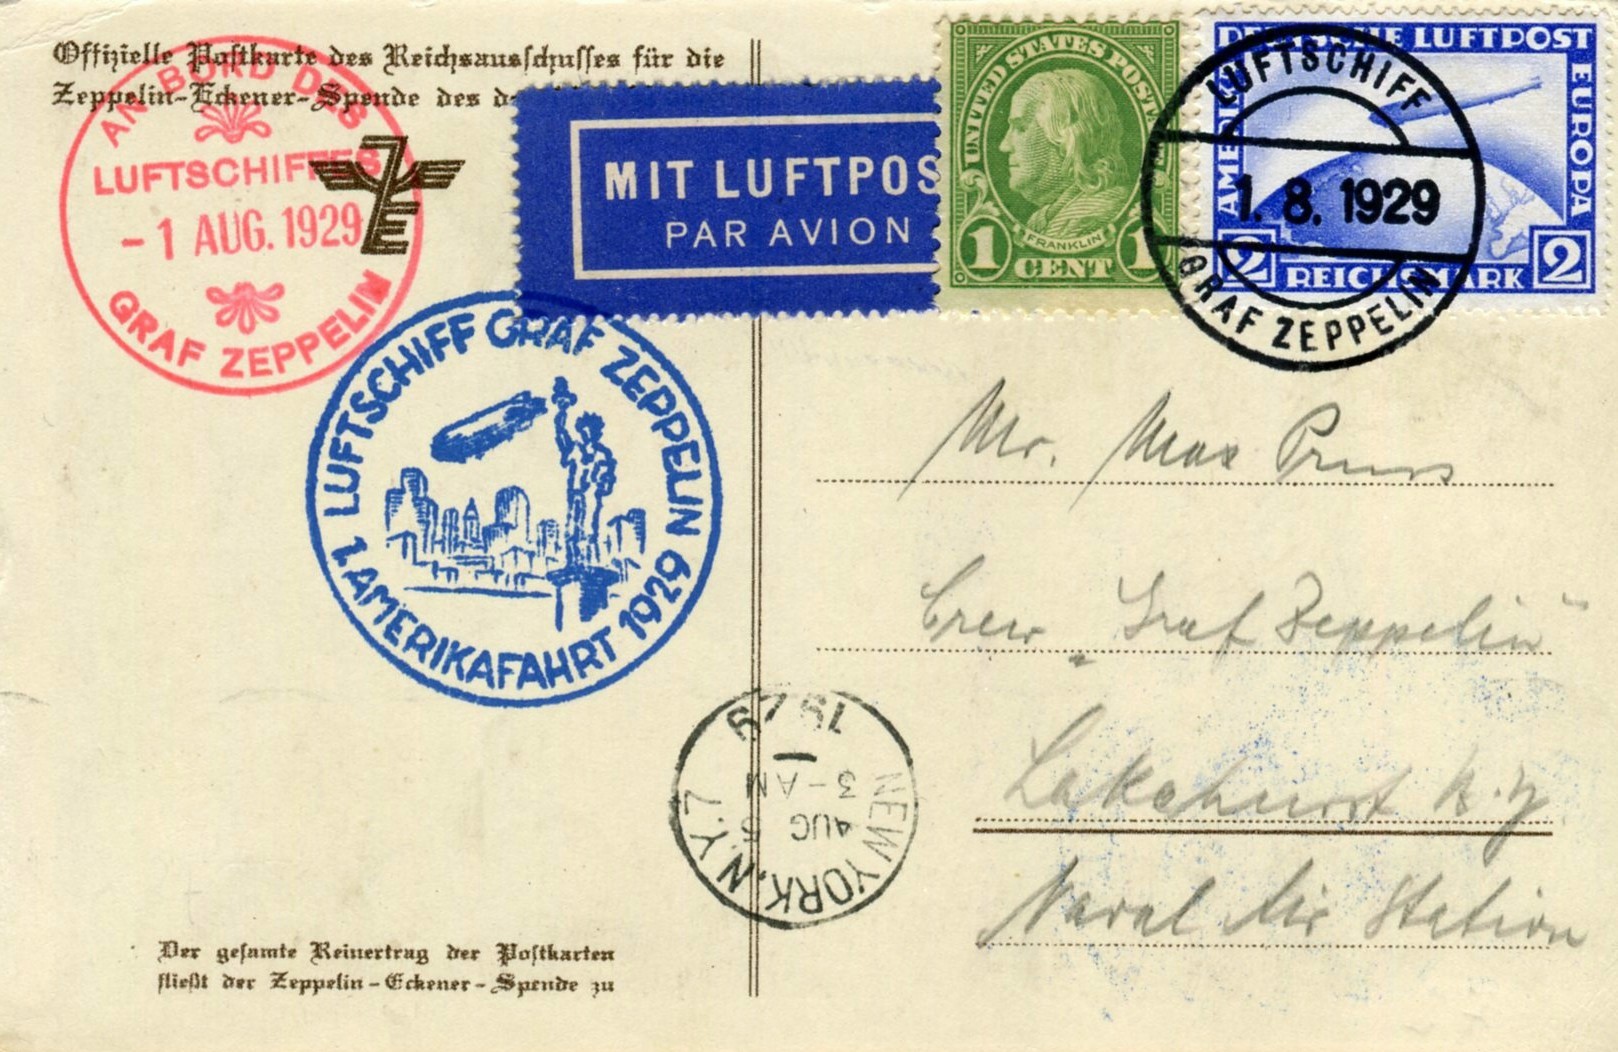 Offizielle Postkarte des Reichsausschusses für die
Zeppelin-Eckener-Spende des d
AN BORD DES
LUFTSCHIFFES
- 1 AUG. 1929
GRAF ZEPPELIN
ZE
MIT LUFTPOS
PAR AVION
UNITED STATES POSTA
FRANKLIN
1 CENT 1
DEUTSCHE LUFTPOST
EUROPA
AMERI
2 REICHSMARK 2
LUFTSCHIFF
1. 8. 1929
GRAF ZEPPELIN
LUFTSCHIFF GRAF ZEPPELIN
1. AMERIKAFAHRT 1929
Mr. Max Pruss
Crew "Graf Zeppelin"
Lakehurst N.Y.
Naval Air Station
NEW YORK, N.Y. 7
AUG 5
3-AM
1929
Der gesamte Reinertrag der Postkarten
fließt der Zeppelin-Eckener-Spende zu